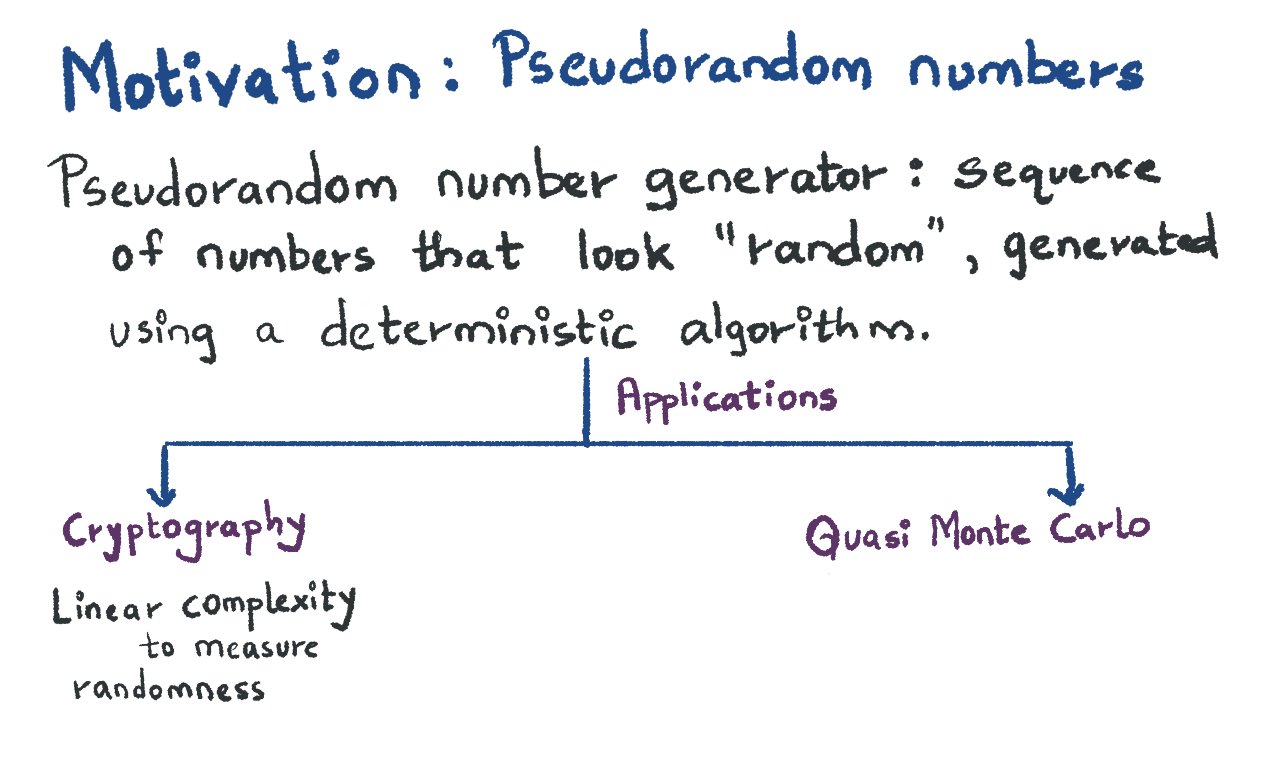 Motivation: Pseudorandom numbers
Pseudorandom number generator: sequence
of numbers that look "random", generated
using a deterministic algorithm.
Applications
Cryptography
Quasi Monte Carlo
Linear complexity
to measure
randomness